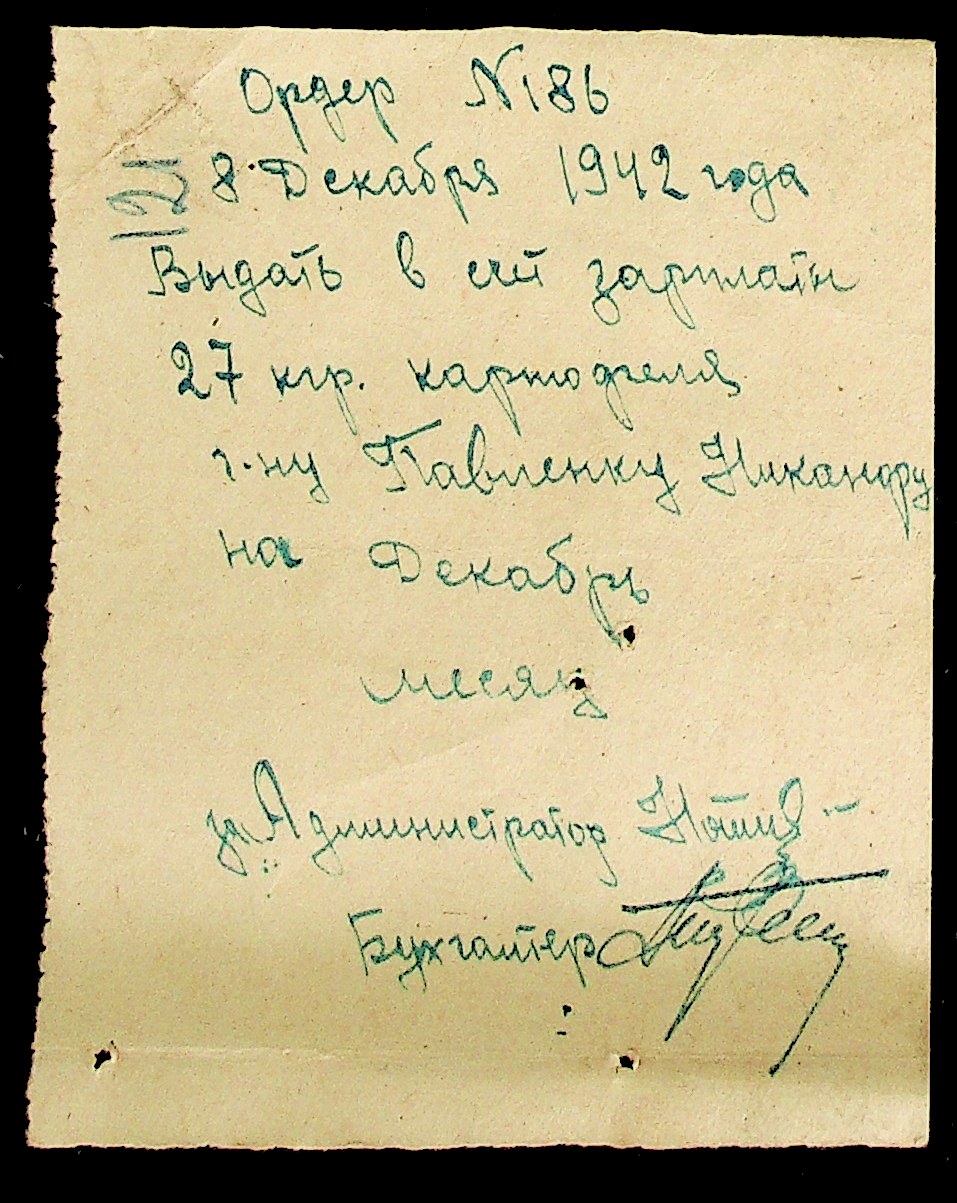 Ордер N 186
121
8 Декабря 1942 года
Выдать в счт зарплаты
27 кгр. картофеля
г-ну Павленку Никанору
на Декабрь
месяц
за Администратор
Бухгалтер